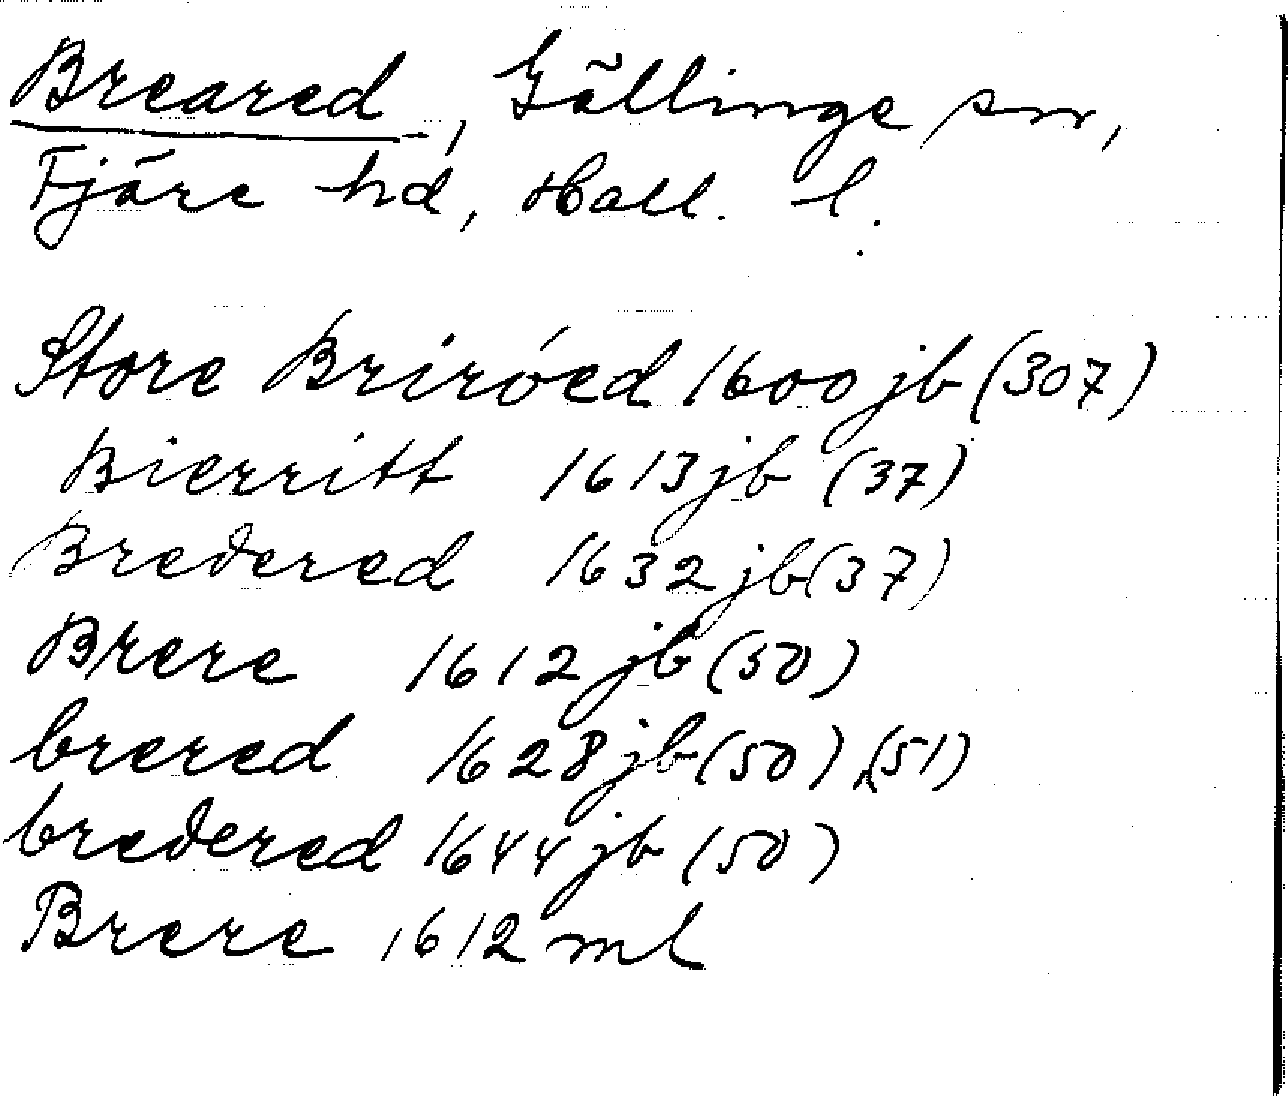 Breared, Gällinge sn,
Fjäre hd, Hall. l.
Store Briróed 1600 jb (307)
Bierritt 1613 jb (37)
Bredered 1632 jb (37)
Brere 1612 jb (50)
brered 1628 jb (50), (51)
bredered 1644 jb (50)
Brere 1612 ml